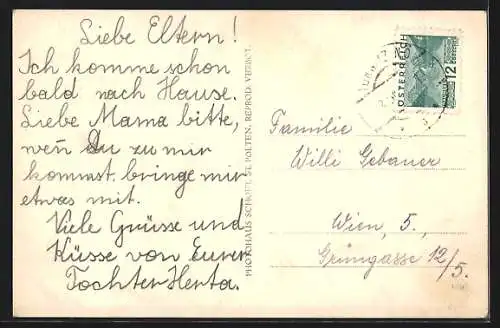 Liebe Eltern!
Ich komme schon
bald nach Hause.
Liebe Mama bitte,
weñ Du zu mir
kommst, bringe mir
etwas mit.
Viele Grüsse und
Küsse von Eurer
Tochter Herta.
PHOTOHAUS SCHÖFL, ST. PÖLTEN. REPROD. VERBOT.
ÖSTERREICH
12
Familie
Willi Gebauer
Wien, 5.,
Grüngasse 12/5.